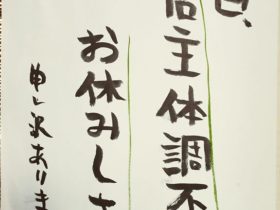 日、
店主体調不
お休みしま
申し訳ありま